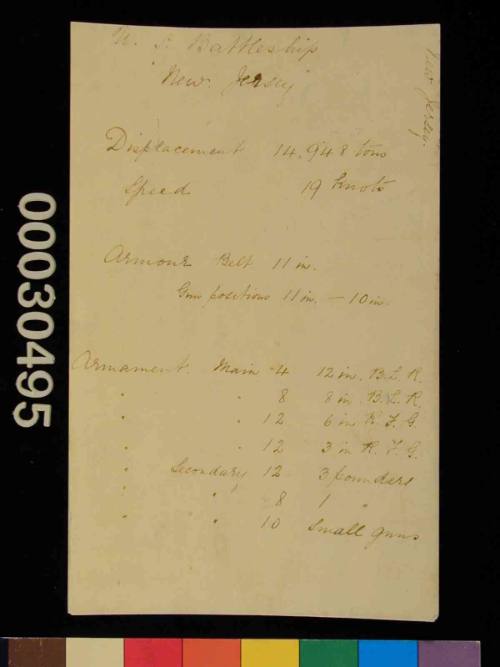 U. S. Battleship
"New Jersey"
New Jersey.
Displacement 14,948 tons
Speed 19 Knots
Armour Belt 11 in.
Gun positions 11 in. — 10 in.
Armament. Main 4 12 in. B. L. R.
" " 8 8 in. B. L. R.
" " 12 6 in R. F. G.
" " 12 3 in R. F. G.
" Secondary 12 3 pounders
" " 8 1 "
" " 10 Small guns
00030495